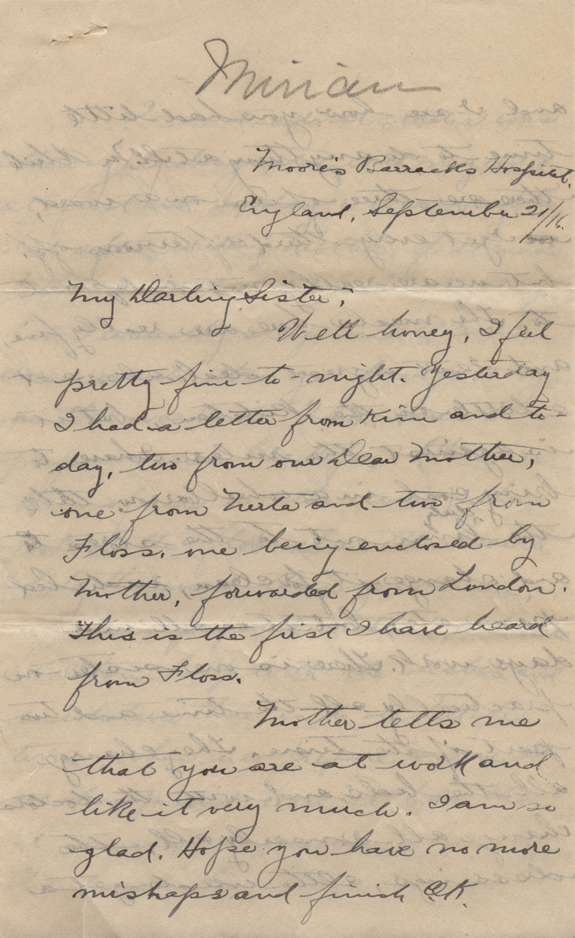 Miriam
Moore's Barracks Hospital,
England, September 21/16.
My Darling Sister;
Well honey, I feel
pretty fine to-night. Yesterday
I had a letter from Kim and to-
day, two from our Dear Mother,
one from Verta and two from
Floss, one being enclosed by
Mother, forwarded from London.
This is the first I have heard
from Floss.
Mother tells me
that you are at work and
like it very much. I am so
glad. Hope you have no more
mishaps and finish O.K.